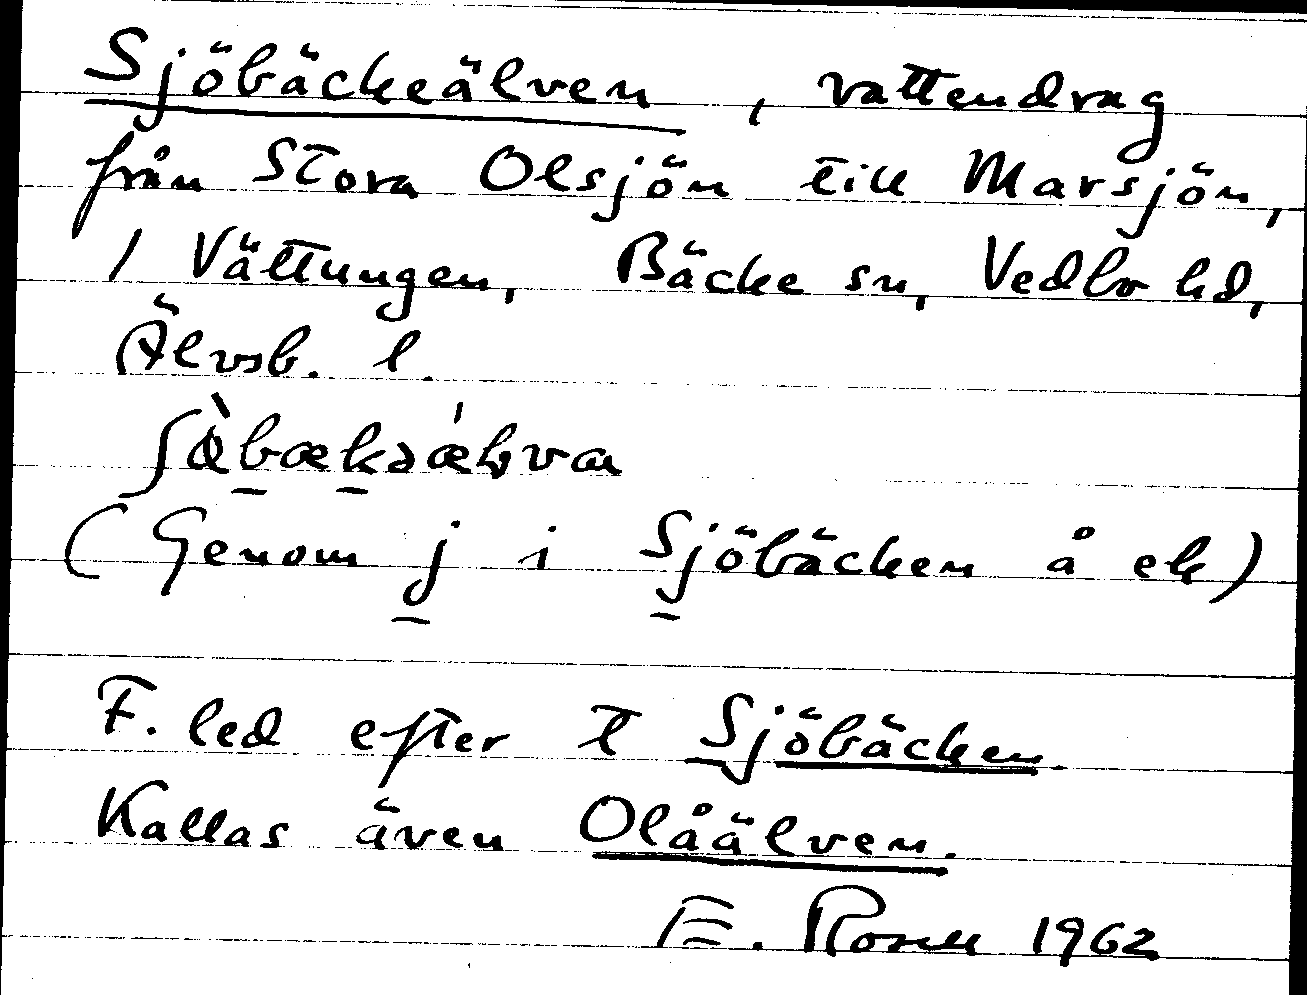 Sjöbäckeälven, vattendrag
från Stora Olsjön till Marsjön,
/ Vättungen, Bäcke sn, Vedbo hd,
Älvsb. l.
(Genom j i Sjöbäcken å ek)
F. led efter t Sjöbäcken.
Kallas även Olåälven.
E. Rosell 1962